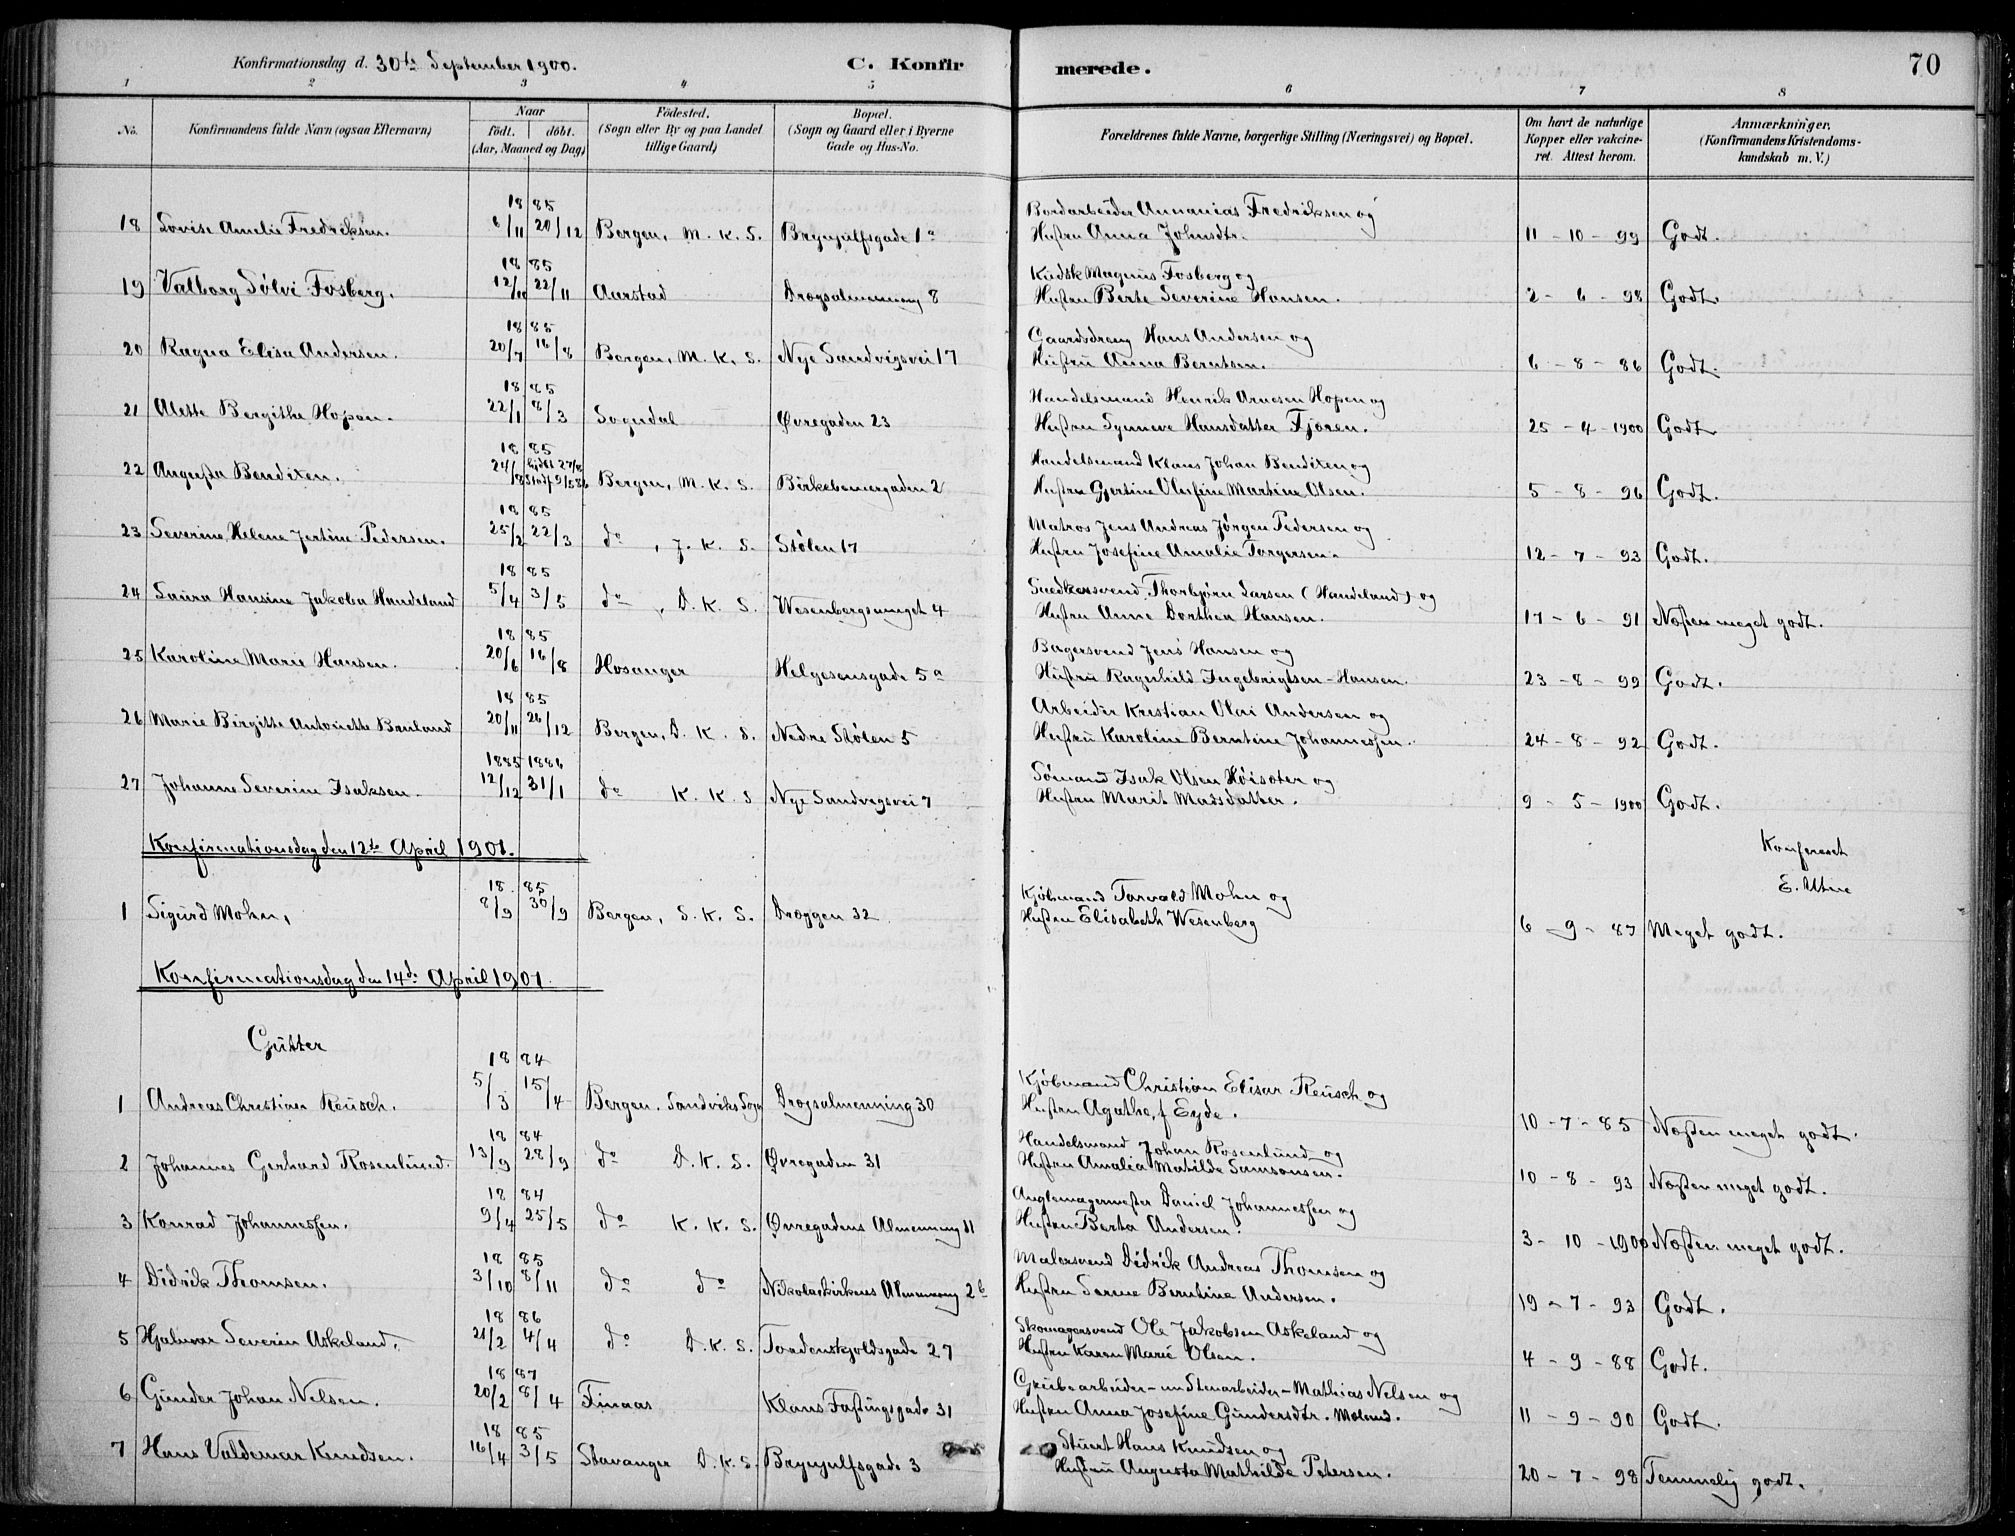 Konfirmationsdag d. 30te September 1900.
C. Konfirmerede.
70
1 2 3 4 5 6 7 8
No.
Konfirmandens fulde Navn (ogsaa Efternavn)
Naar
født. døbt.
(Aar, Maaned og Dag)
Fødested.
(Sogn eller By og paa Landet
tillige Gaard)
Bopæl.
(Sogn og Gaard eller i Byerne
Gade og Hus-No.
Forældrenes fulde Navne, borgerlige Stilling (Næringsvei) og Bopæl.
Om havt de naturlige
Kopper eller vakcine-
ret. Attest herom.
Anmærkninger.
(Konfirmandens Kristendoms-
kundskab m. V.)
18 85 Bordarbeider Annanias Fredriksen og
18 Lovise Amelie Fredriksen. 6/11 20/12 Bergen, M. K. S. Brynjulfsgade 1a Hustru Anna Johnsdtr. 11 - 10 - 99 Godt.
18 85 Kudsk Magnus Fosberg og
19 Valborg Sølvi Fosberg. 12/10 22/11 Aarstad Dregsalmenning 8 Hustru Berte Severine Hansen. 2 - 6 - 98 Godt.
18 85 Gaardsdreng Hans Andersen og
20 Ragna Elisa Andersen. 20/7 16/8 Bergen, M. K. S. Nye Sandvigsvei 17 Hustru Anna Berntsen. 6 - 8 - 86 Godt.
18 85 Handelsmand Henrik Arnesen Hopen og
21 Alette Bergithe Hopen. 22/1 8/3 Sogndal Øvregaden 23 Hustru Synneve Hansdatter Fjøren. 25 - 4 - 1900 Godt
18 85 Handelsmand Klaus Johan Benditen og
22 Augusta Benditen. 24/8 Bergen, M. K. S. Birkebeinergaden 2 Hustru Gjertine Olesfine Martine Olsen. 5 - 8 - 96 Godt.
18 85 Matros Jens Andreas Jørgen Pedersen og
23 Severine Helene Jertine Pedersen. 25/2 22/3 do, J. K. S. Stølen 17 Hustru Josefine Amalie Torgersen. 12 - 7 - 93 Godt.
18 85 Snedkersvend Thorbjørn Larsen (Handeland) og
24 Laura Hansine Jakoba Handeland 5/4 3/5 do, D. K. S. Wesenbergsmuget 4 Hustru Anne Dorthea Hansen. 17 - 6 - 91 Næsten meget godt.
18 85 Bagersvend Jens Hansen og
25 Karoline Marie Hansen. 20/6 16/8 Hosanger Helgesensgade 5a Hustru Ragnhild Ingebrigtsen-Hansen. 23 - 8 - 99 Godt.
18 85 Arbeider Kristian Olai Andersen og
26 Marie Birgitte Antoinette Bruland 20/11 26/12 Bergen, D. K. S. Nedre Stølen 5 Hustru Karoline Berntine Johannessen. 24 - 8 - 92 Godt.
1885 1886 Sømand Isak Olsen Høisæter og
27 Johanne Severine Isaksen. 12/12 31/1 do K. K. S Nye Sandvigsvei 7 Hustru Marit Madsdatter. 9 - 5 - 1900 Godt.
Konfirmationsdag den 12te April 1901.
Konfereret
18 85 E. Utne
Kjøbmand Torvald Mohn og
1 Sigurd Mohn, 8/9 30/9 Bergen, D. K. S. Dreggen 32 Hustru Elisabeth Wesenberg 6 - 9 - 87 Meget godt.
Konfirmationsdag den 14de April 1901.
Gutter
18 84 Kjøbmand Christian Elisar Reusch og
1 Andreas Christian Reusch. 5/3 15/4 Bergen. Sandviks Sogn Dregsalmenning 30 Hustru Agathe, f Eyde. 10 - 7 - 85 Næsten meget godt.
18 84 Handelsmand Johan Rosenlund og
2 Johannes Gerhard Rosenlund. 13/9 28/9 do D. K. S. Øvregaden 31 Hustru Amalia Matilde Samsonsen. 10 - 8 - 93 Næsten meget godt.
18 84 Anglemagermester Daniel Johannessen og
3 Konrad Johannessen. 9/4 25/5 do K. K. S. Øvregadens Almenning 11 Hustru Berta Andersen. 3 - 10 - 1900 Næsten meget godt.
18 85 Malersvend Didrik Andreas Thomsen og
4 Didrik Thomsen. 3/10 8/11 do do Nikolaikirkens Almenning 2b Hustru Serene Berntine Andersen. 19 - 7 - 93 Godt.
18 86 Skomagersvend Ole Jakobsen Askeland og
5 Hjalmar Severin Askeland. 21/2 4/4 do D. K. S. Tordenskjoldsgade 27 Hustru Karen Marie Olsen. 4 - 9 - 88 Godt.
18 87 Grubearbeider - nu Stenarbeider - Mathias Nelsen og
6 Gunder Johan Nelsen. 20/2 8/4 Finaas Klaus Fastingsgade 31 Hustru Anna Josefine Gundersdtr. Moland. 11 - 9 - 90 Godt.
18 85 Stuert Hans Knudsen og
7 Hans Valdemar Knudsen. 16/4 3/5 Stavanger D. K. S. Brynjulfsgade 3 Hustru Augusta Mathilde Petersen. 20 - 7 - 98 Temmelig godt.